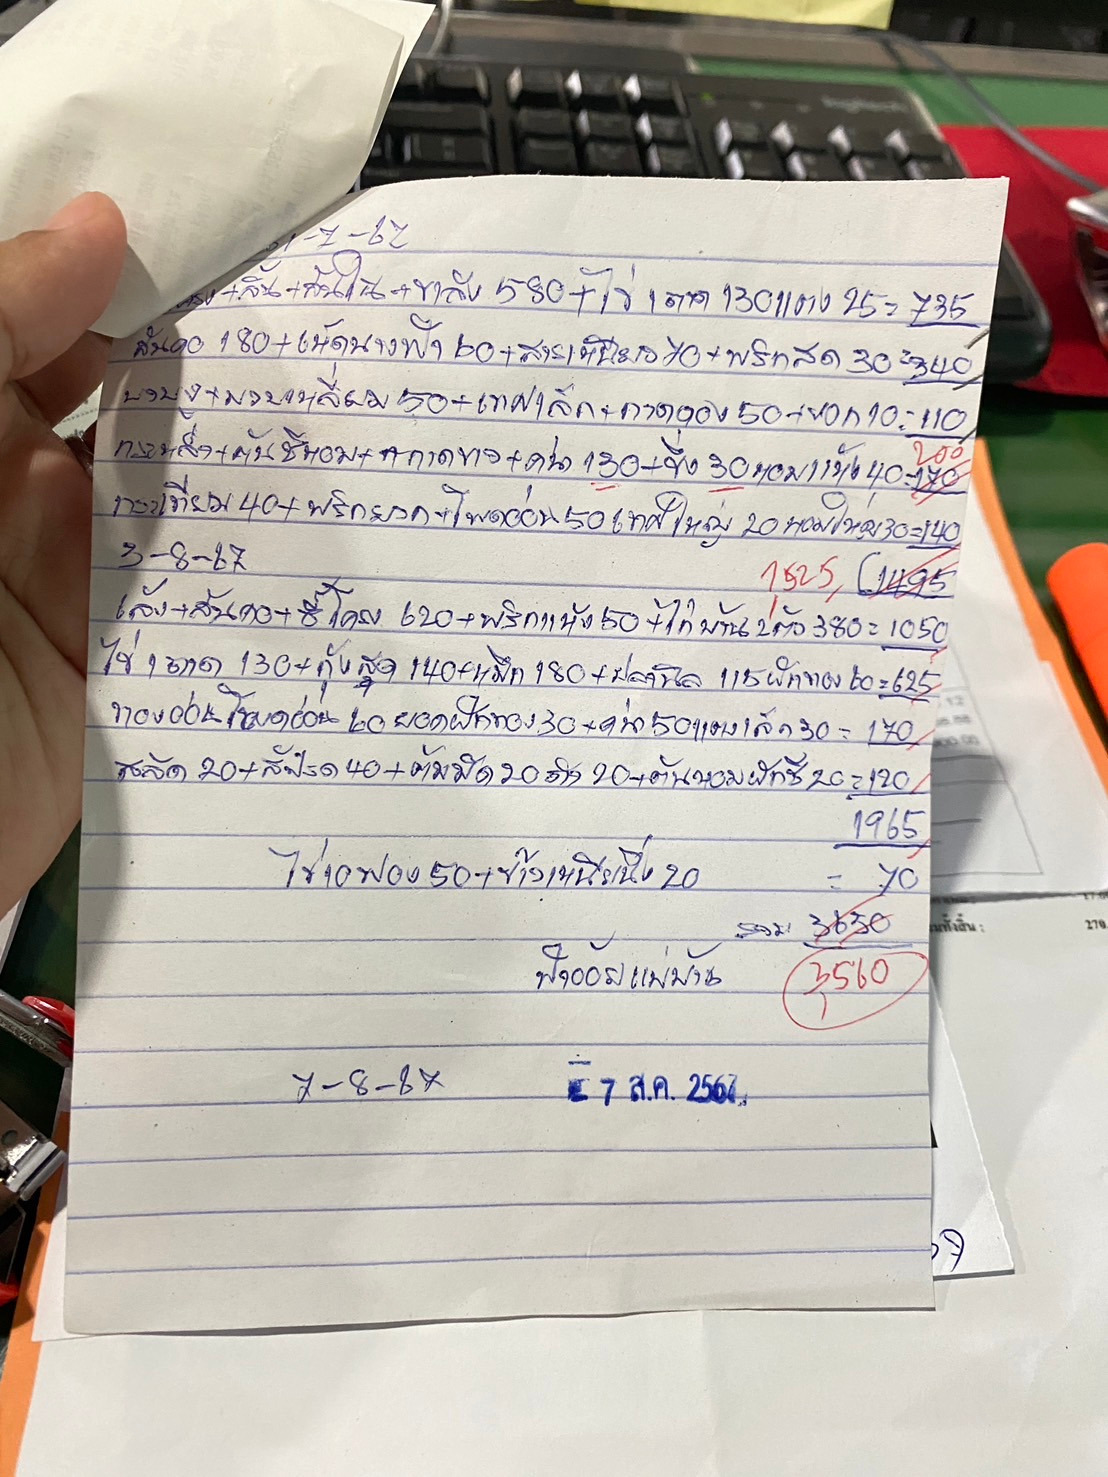 31-7-67
+ลิ้น+สันใน+ขาลัง 580+ไข่ 1 ถาด 130 แตง 25 = 735
สันคอ 180+เห็ดนางฟ้า 60+สาระแหน่ 70+พริกสด 30 = 340
บวบงู+บวบเหลี่ยม 50+เทศเล็ก+กาดดอง 50+บอก 10 = 110
200
+ต้นชีหอม+กาดขาว+คะน้า 130+ขิง 30 หอมแห้ง 40 = 170
กระเทียม 40+พริกยวก+โพดอ่อน 50 เทศใหญ่ 20 หอมใหญ่ 30 = 140
3-8-67 1525 1495
เล้ง+สันคอ+ซี่โครง 620+พริกแห้ง 50+ไก่บ้าน 2 ตัว 380 = 1050
ไข่ 1 ถาด 130+กุ้งสด 140+หมึก 180+ปลานิล 115 ฟักทอง 60 = 625
โพดอ่อน 60 ยอดฟักทอง 30+คะน้า 50 แตงเล็ก 30 = 170
สลัด 20+สัปรด 40+ส้มมีด 20 20+ต้นหอมผักชี 20 = 120
1965
ไข่ 10 ฟอง 50+ข้าวเหนียวนึ่ง 20 = 70
รวม 3630
ป้าออยแม่บ้าน 3560
7-8-67 7 ส.ค. 2567
17.0
270.